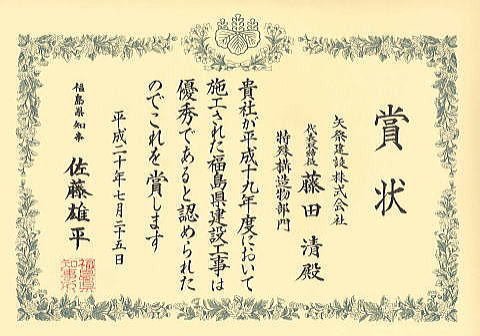 賞状
矢祭建設株式会社
代表取締役 藤田 清殿
特殊構造物部門
貴社が平成十九年度において
施工された福島県建設工事は
優秀であると認められた
のでこれを賞します
平成二十年七月二十五日
福島県知事 佐藤雄平
福島県
知事印